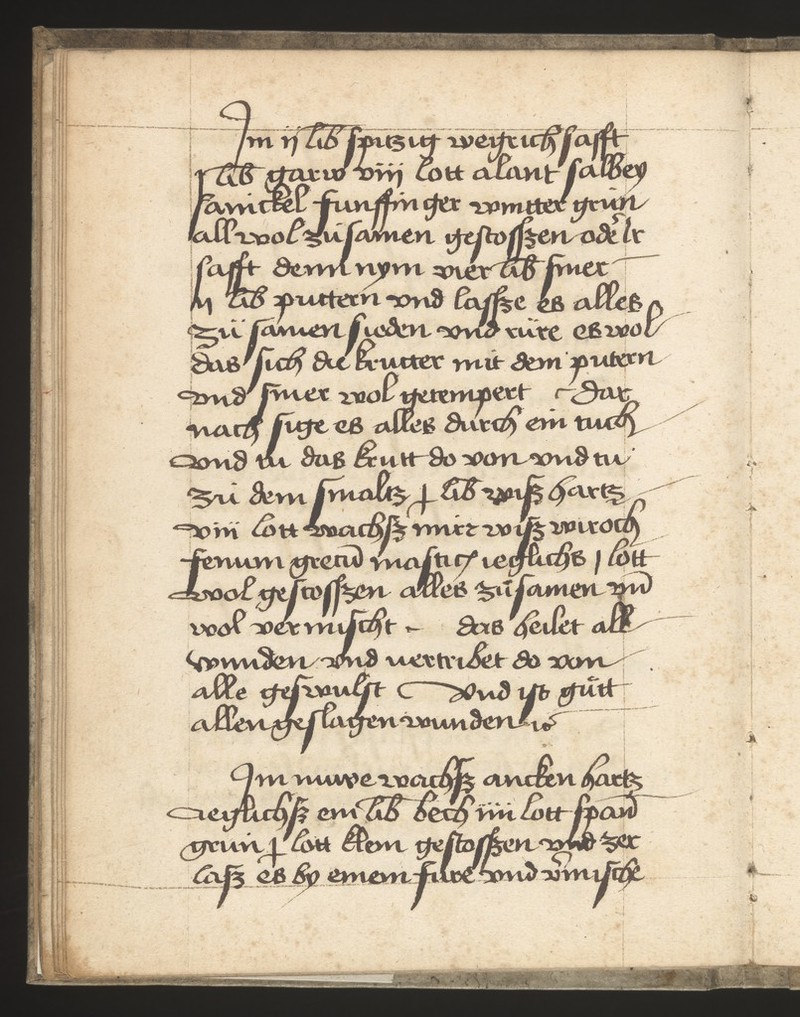 Im ij lib spitzig wegrich safft
j lib garw viij lott alant salbey
sanickel funffinger wintter grün
all wol zü samen gestossen oder ir
safft denn nym vier lib smer
ij lib puttern vnd lassze es alles
zü samen sieden vnd rüre es wol
das sich die krutter mit dem putern
vnd smer wol getempert Dar
nach sige es alles durch ein tuch
vnd tu das krutt do von vnd tu
zü dem smaltz j lib wiß hartz
viij lott wachß mirr wiß wiroch
fenum grecū mastix ieglichs j lott
wol gestosszen alles zü samen vn̄
wol vermischt das heilet all
wunden vnd uertribet do von
alle geswulst Vnd ist gütt
allen geslagen wunden
Im nuwe wachß ancken hartz
ieglichß ein lib bech iiii lott span̄
grün j lott klein gestosszen vnd zer
laß es by einem füre vnd v̄mische